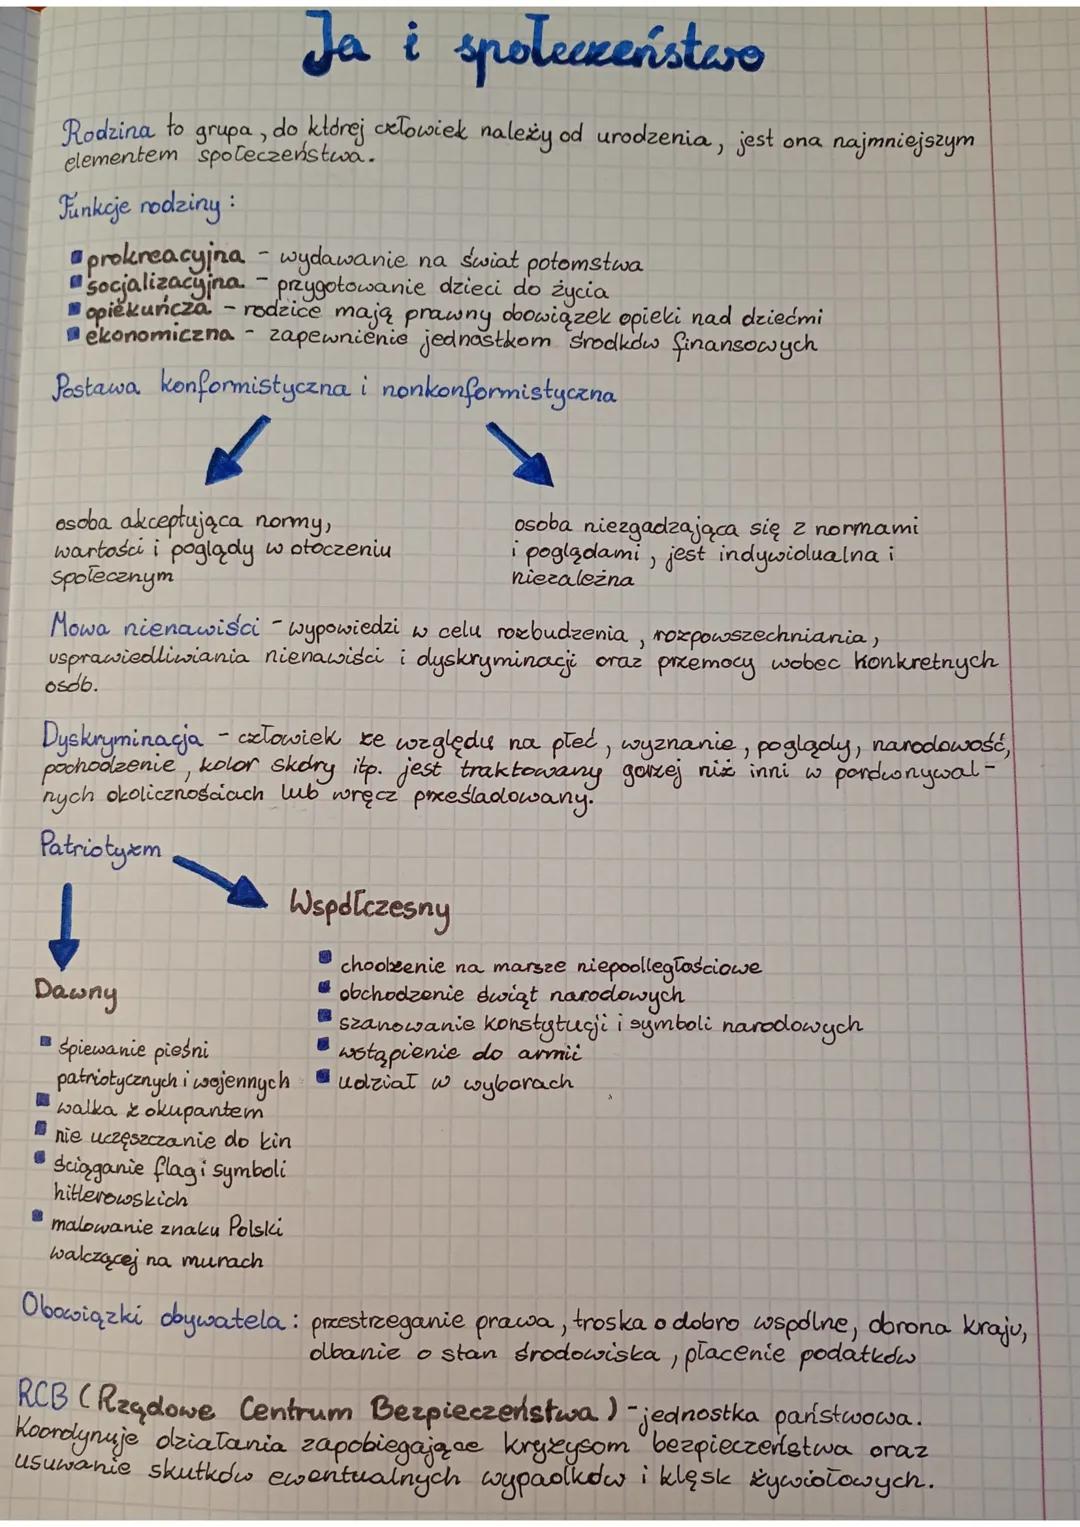 Ja i społeczeństwo
Rodzina to grupa, do której człowiek należy od urodzenia, jest ona najmniejszym
elementem społeczeństwa.
Funkcje rodziny:
prokreacyjna - wydawanie na świat potomstwa
socjalizacyjna - przygotowanie dzieci do życia
opiekuńcza - rodzice mają prawny obowiązek opieki nad dziećmi
ekonomiczna - zapewnienie jednostkom środków finansowych
Postawa konformistyczna i nonkonformistyczna
osoba akceptująca normy,
wartości i poglądy w otoczeniu
społecznym
osoba niezgadzająca się z normami
i poglądami, jest indywidualna i
niezależna
Mowa nienawiści - wypowiedzi w celu rozbudzenia, rozpowszechniania,
usprawiedliwiania nienawiści i dyskryminacji oraz przemocy wobec konkretnych
osób.
Dyskryminacja - człowiek ze względu na płeć, wyznanie, poglądy, narodowość,
pochodzenie, kolor skóry itp. jest traktowany gorzej niż inni w porównywal-
nych okolicznościach lub wręcz prześladowany.
Patriotyzm
Współczesny
chodzenie na marsze niepodległościowe
obchodzenie świąt narodowych
szanowanie konstytucji i symboli narodowych
wstąpienie do armii
udział w wyborach
Dawny
śpiewanie pieśni
patriotycznych i wojennych
walka z okupantem
nie uczęszczanie do kin
ściąganie flag i symboli
hitlerowskich
malowanie znaku Polski
walczącej na murach
Obowiązki obywatela: przestrzeganie prawa, troska o dobro wspólne, obrona kraju,
dbanie o stan środowiska, płacenie podatków
RCB (Rządowe Centrum Bezpieczeństwa) - jednostka państwowa.
Koordynuje działania zapobiegające kryzysom bezpieczeństwa oraz
usuwanie skutków ewentualnych wypadków i klęsk żywiołowych.